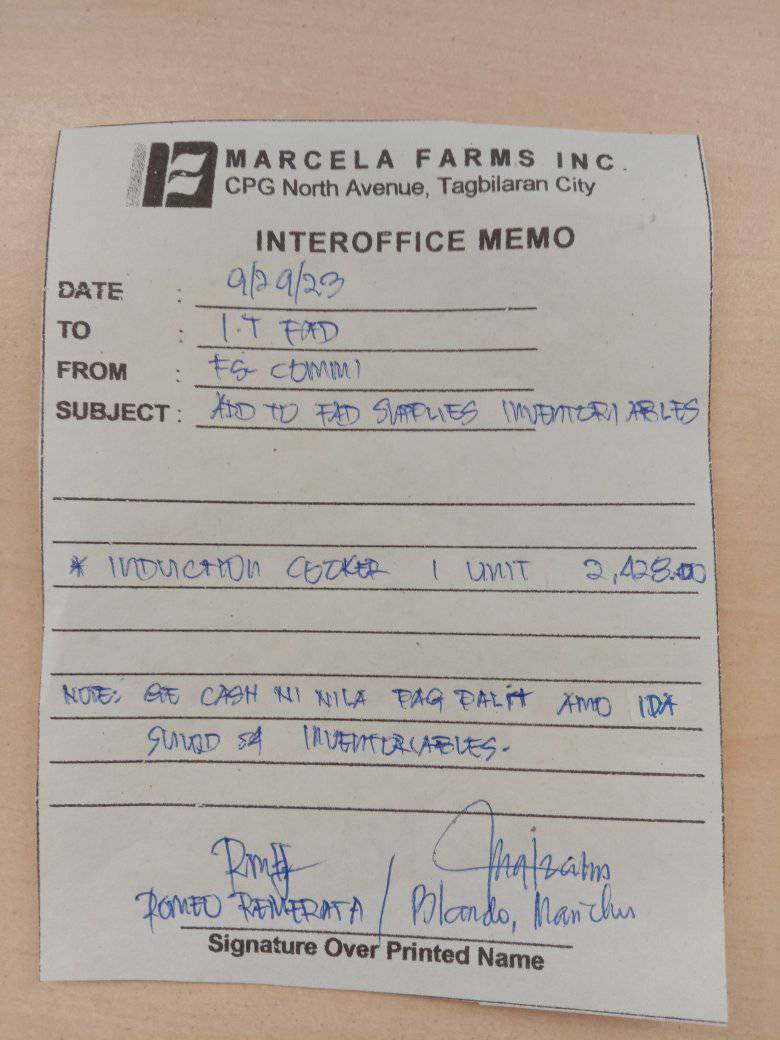 MARCELA FARMS INC.
CPG North Avenue, Tagbilaran City
INTEROFFICE MEMO
DATE : 9/29/23
TO : I.T FAD
FROM : FG COMMI
SUBJECT : ADD TO FAD SUPPLIES INVENTORIABLES
* INDUCTION COOKER 1 UNIT 2,428.00
NOTE: GE CASH NI NILA PAG PALIT AMO IDA
SUMOD SA INVENTORIABLES.
ROMEO REMERATA / Blando, Marichu
Signature Over Printed Name